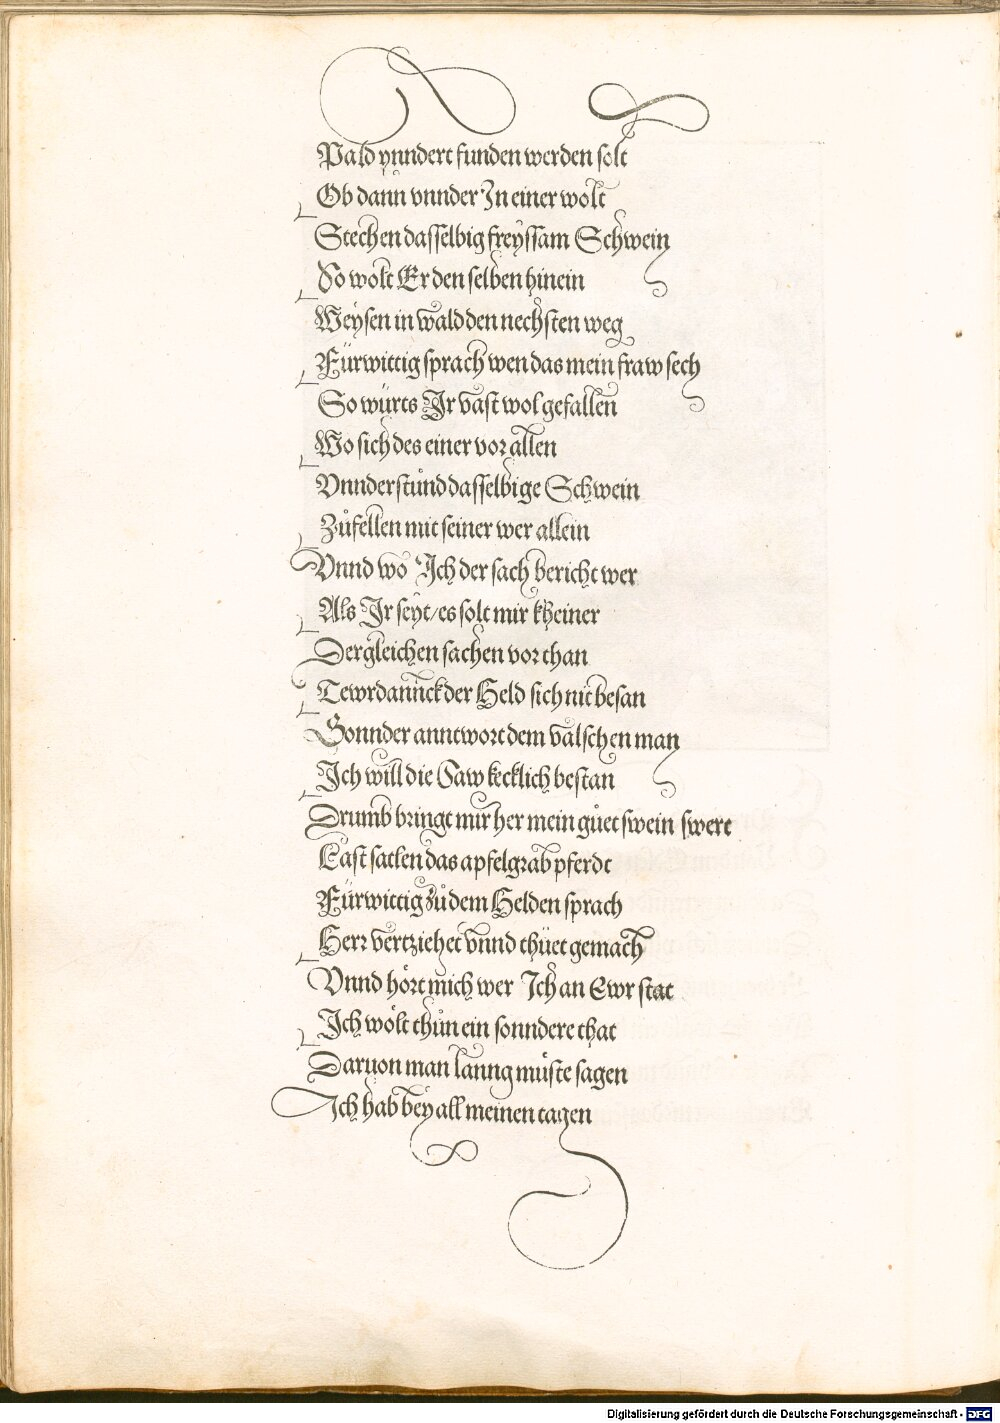 Pald ynndert funden werden solt
Ob dann vnnder In einer wolt
Stechen dasselbig freyssam Schwein
So wolt Er den selben hinein
Weysen in wald den nechsten weg
Fürwittig sprach wen das mein fraw sech
So würts Ir vast wol gefallen
Wo sich des einer vor allen
Vnnderstůnd dasselbige Schwein
Zůfellen mit seiner wer allein
Vnnd wo Ich der sach bericht wer
Als Ir seyt/es solt mir kheiner
Dergleichen sachen vor than
Tewrdannck der Held sich nit besan
Sonnder anntwort dem valschen man
Ich will die Saw kecklich bestan
Drumb bringt mir her mein gůet swein swert
Last satlen das apfelgrab pferdt
Fürwittig zů dem Helden sprach
Herr vertziehet vnnd thüet gemach
Vnnd hört mich wer Ich an Ewr stat
Ich wölt thůn ein sonndere that
Daruon man lanng müste sagen
Ich hab bey all meinen tagen
Digitalisierung gefördert durch die Deutsche Forschungsgemeinschaft - DFG